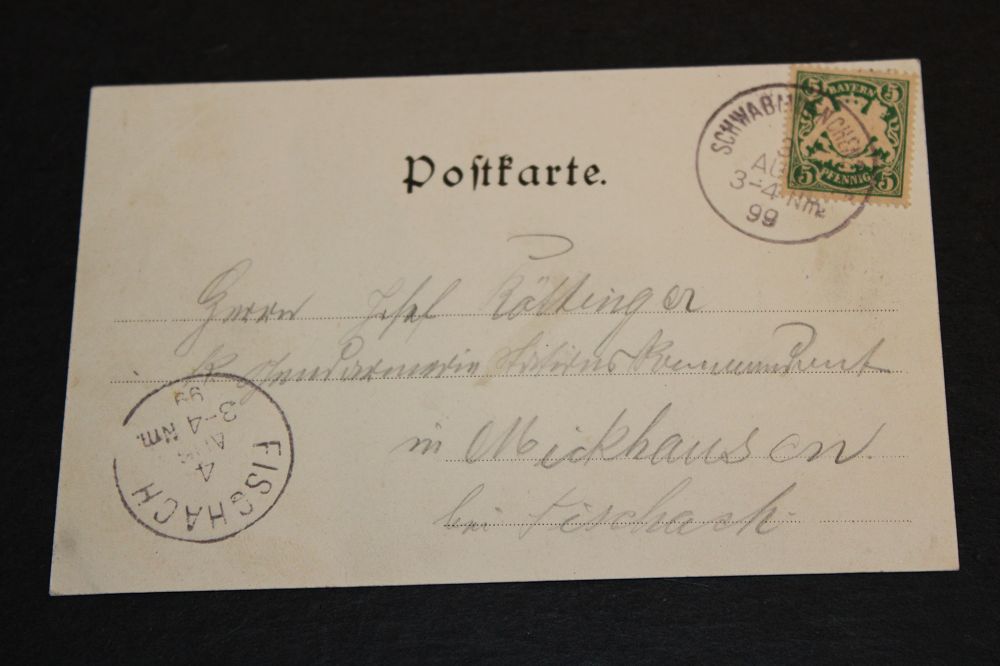 5 BAYERN 5
5 PFENNIG 5
SCHWABMÜNCHEN
AUG
3-4 Nm.
99
Postkarte.
Herrn Josef Röttinger
K. Gendarmerie Stations Kommandant
in Mickhausen.
bei Fischach.
FISCHACH
4
AUG
3-4 Nm.
99